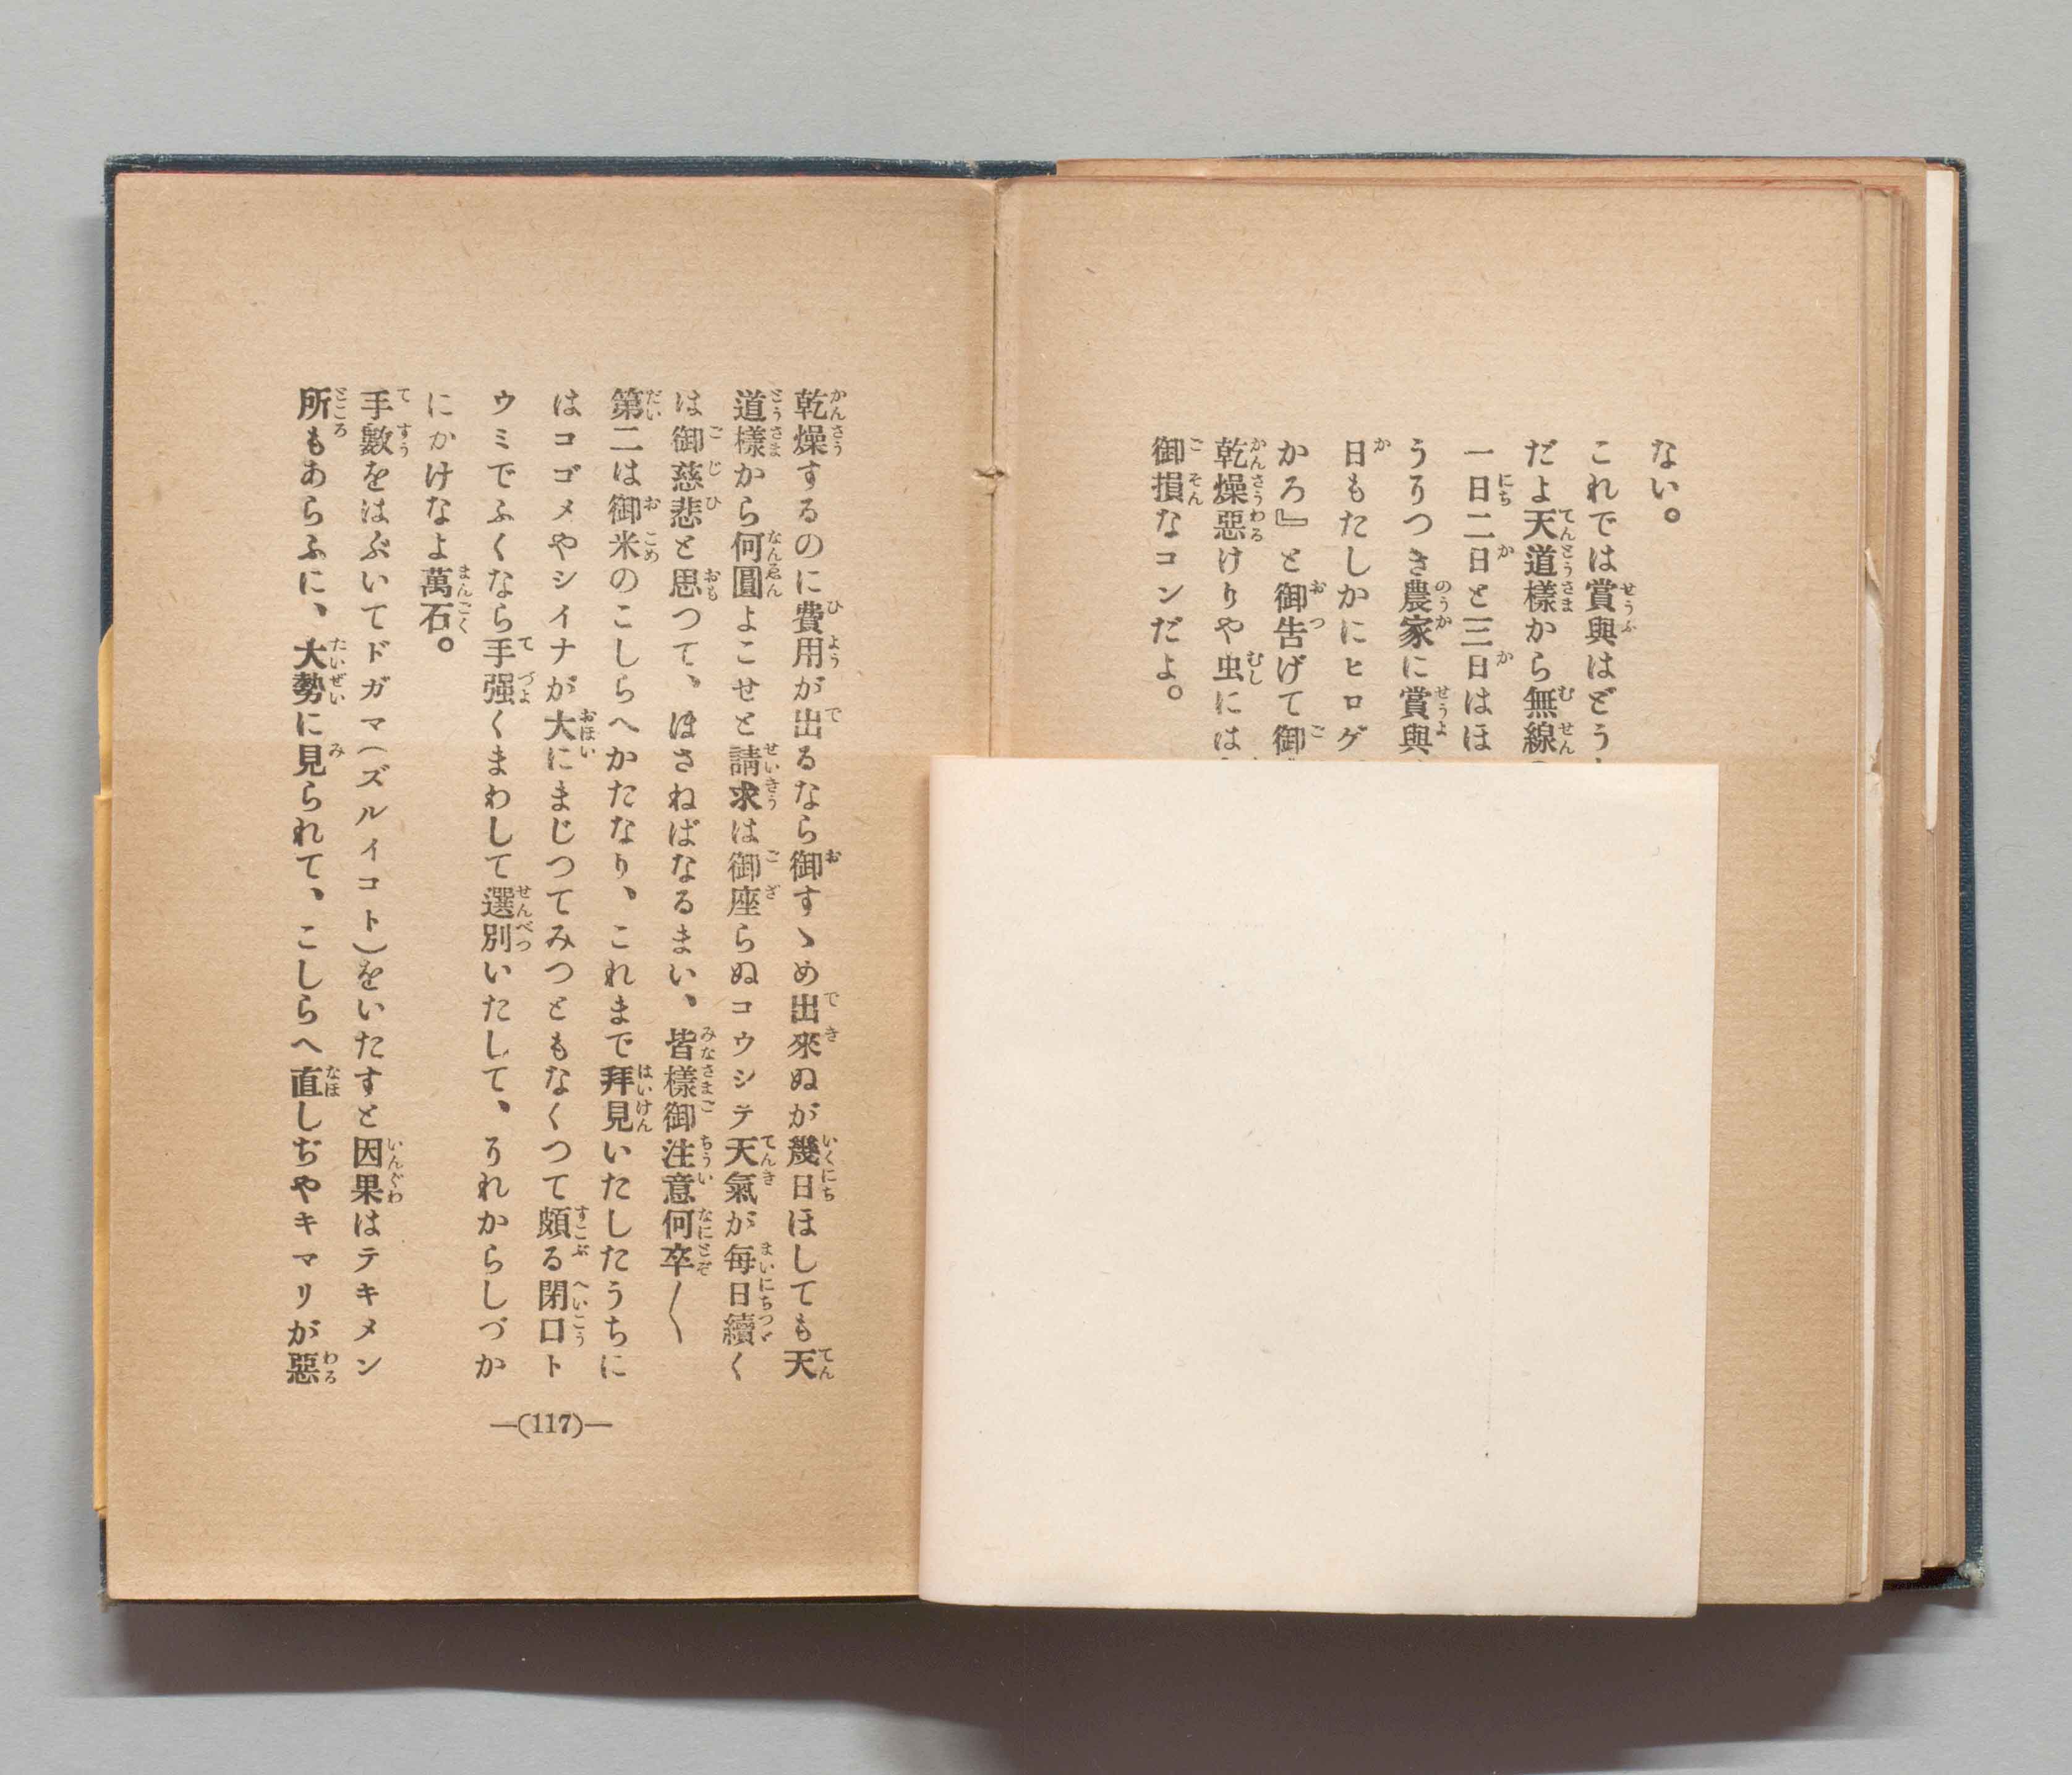 ない。
これでは賞與はどう
だよ天道樣から無線
一日二日と三日はほ
うりつき農家に賞與
日もたしかにヒログ
かろ』と御告げて御
乾燥惡けりや虫には
御損なコンだよ。
乾燥するのに費用が出るなら御すゝめ出來ぬが幾日ほしても天
道樣から何圓よこせと請求は御座らぬコウシテ天氣が每日續く
は御慈悲と思つて、ほさねばなるまい、皆樣御注意何卒〱
第二は御米のこしらへかたなり、これまで拜見いたしたうちに
はコゴメやシイナが大にまじつてみつともなくつて頗る閉口ト
ウミでふくなら手强くまわして選別いたして、うれからしづか
にかけなよ萬石。
手數をはぶいてドガマ(ズルイコト)をいたすと因果はテキメン
所もあらふに、大勢に見られて、こしらへ直しぢやキマリが惡
—(117)—